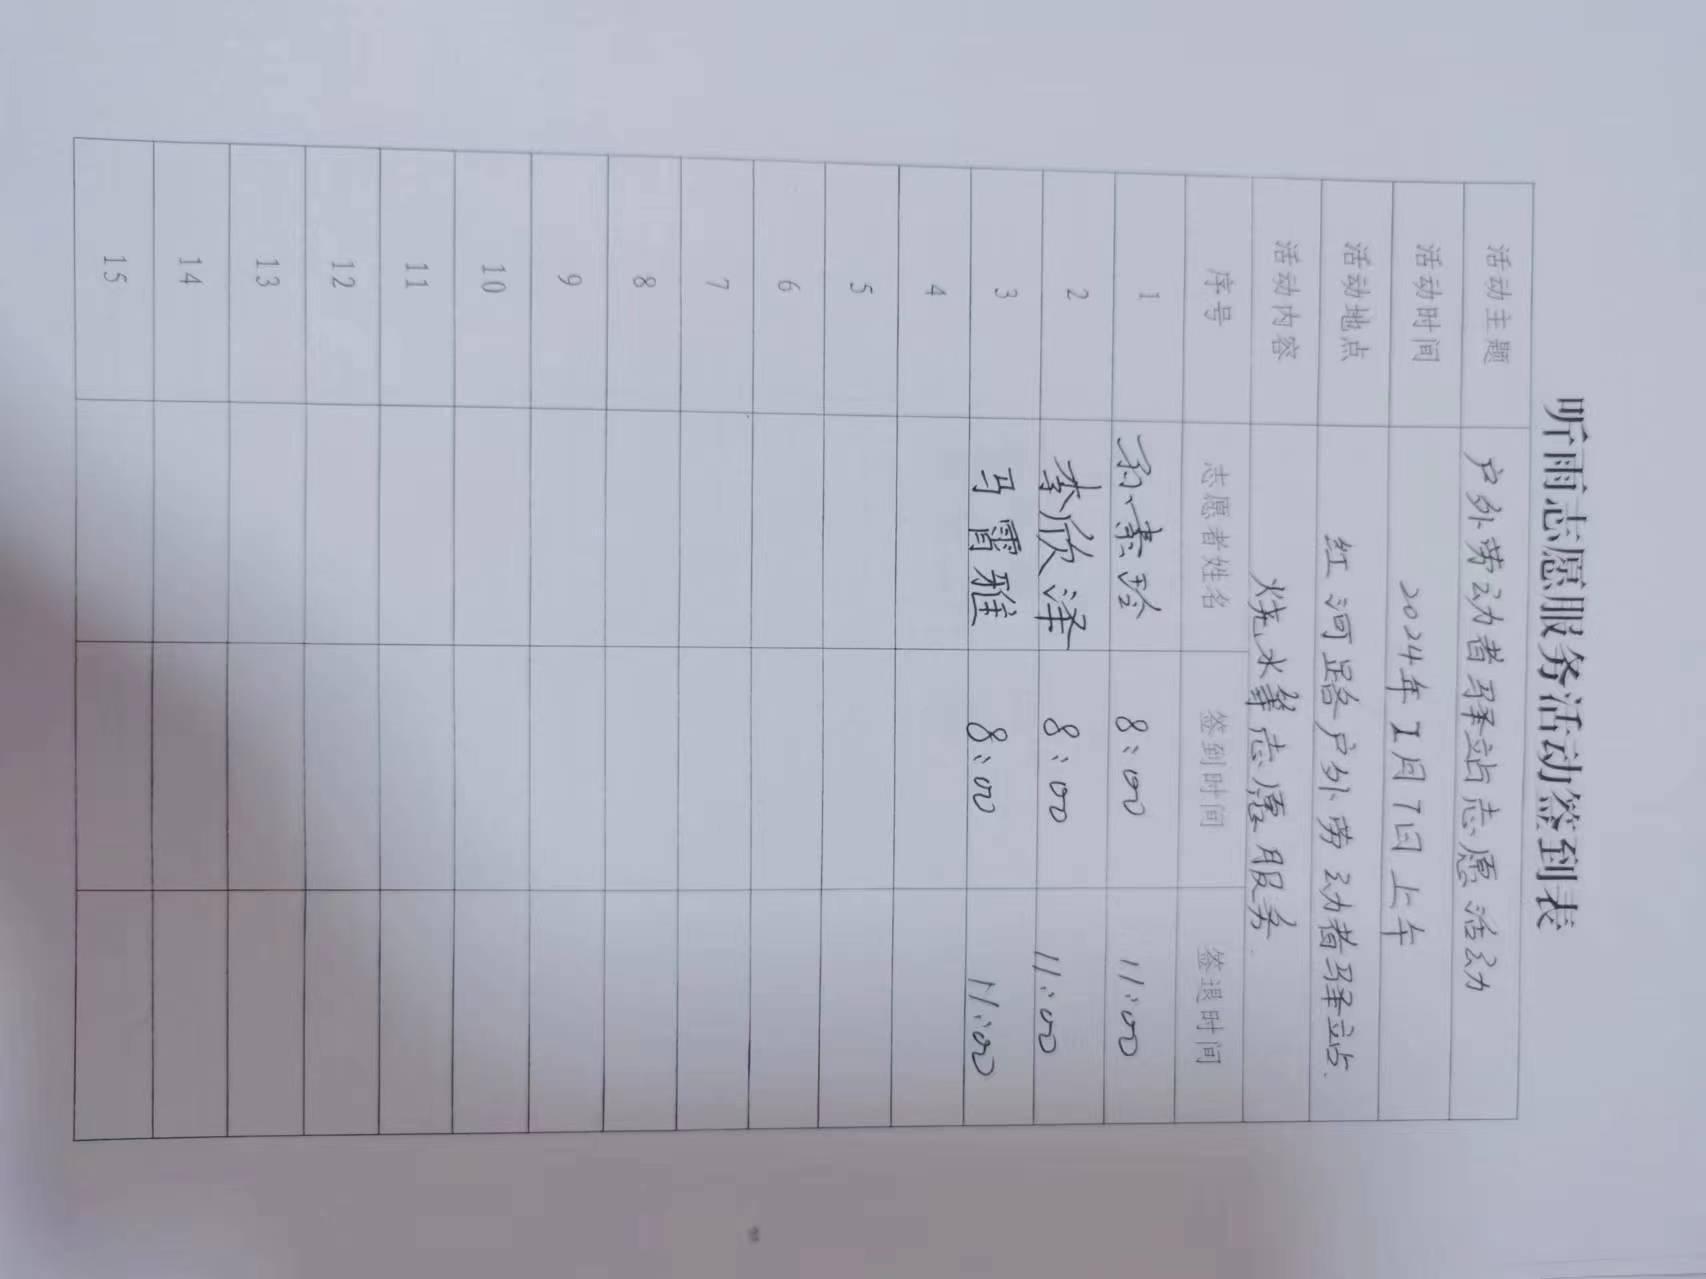 听雨志愿服务活动签到表
活动主题 户外劳动者驿站志愿活动
活动时间 2024年1月7日上午
活动地点 红河路户外劳动者驿站.
活动内容 烧水等志愿服务.
序号 志愿者姓名 签到时间 签退时间
1 孙素玲 8:00 11:00
2 李欣泽 8:00 11:00
3 马霄雅 8:00 11:00
4
5
6
7
8
9
10
11
12
13
14
15